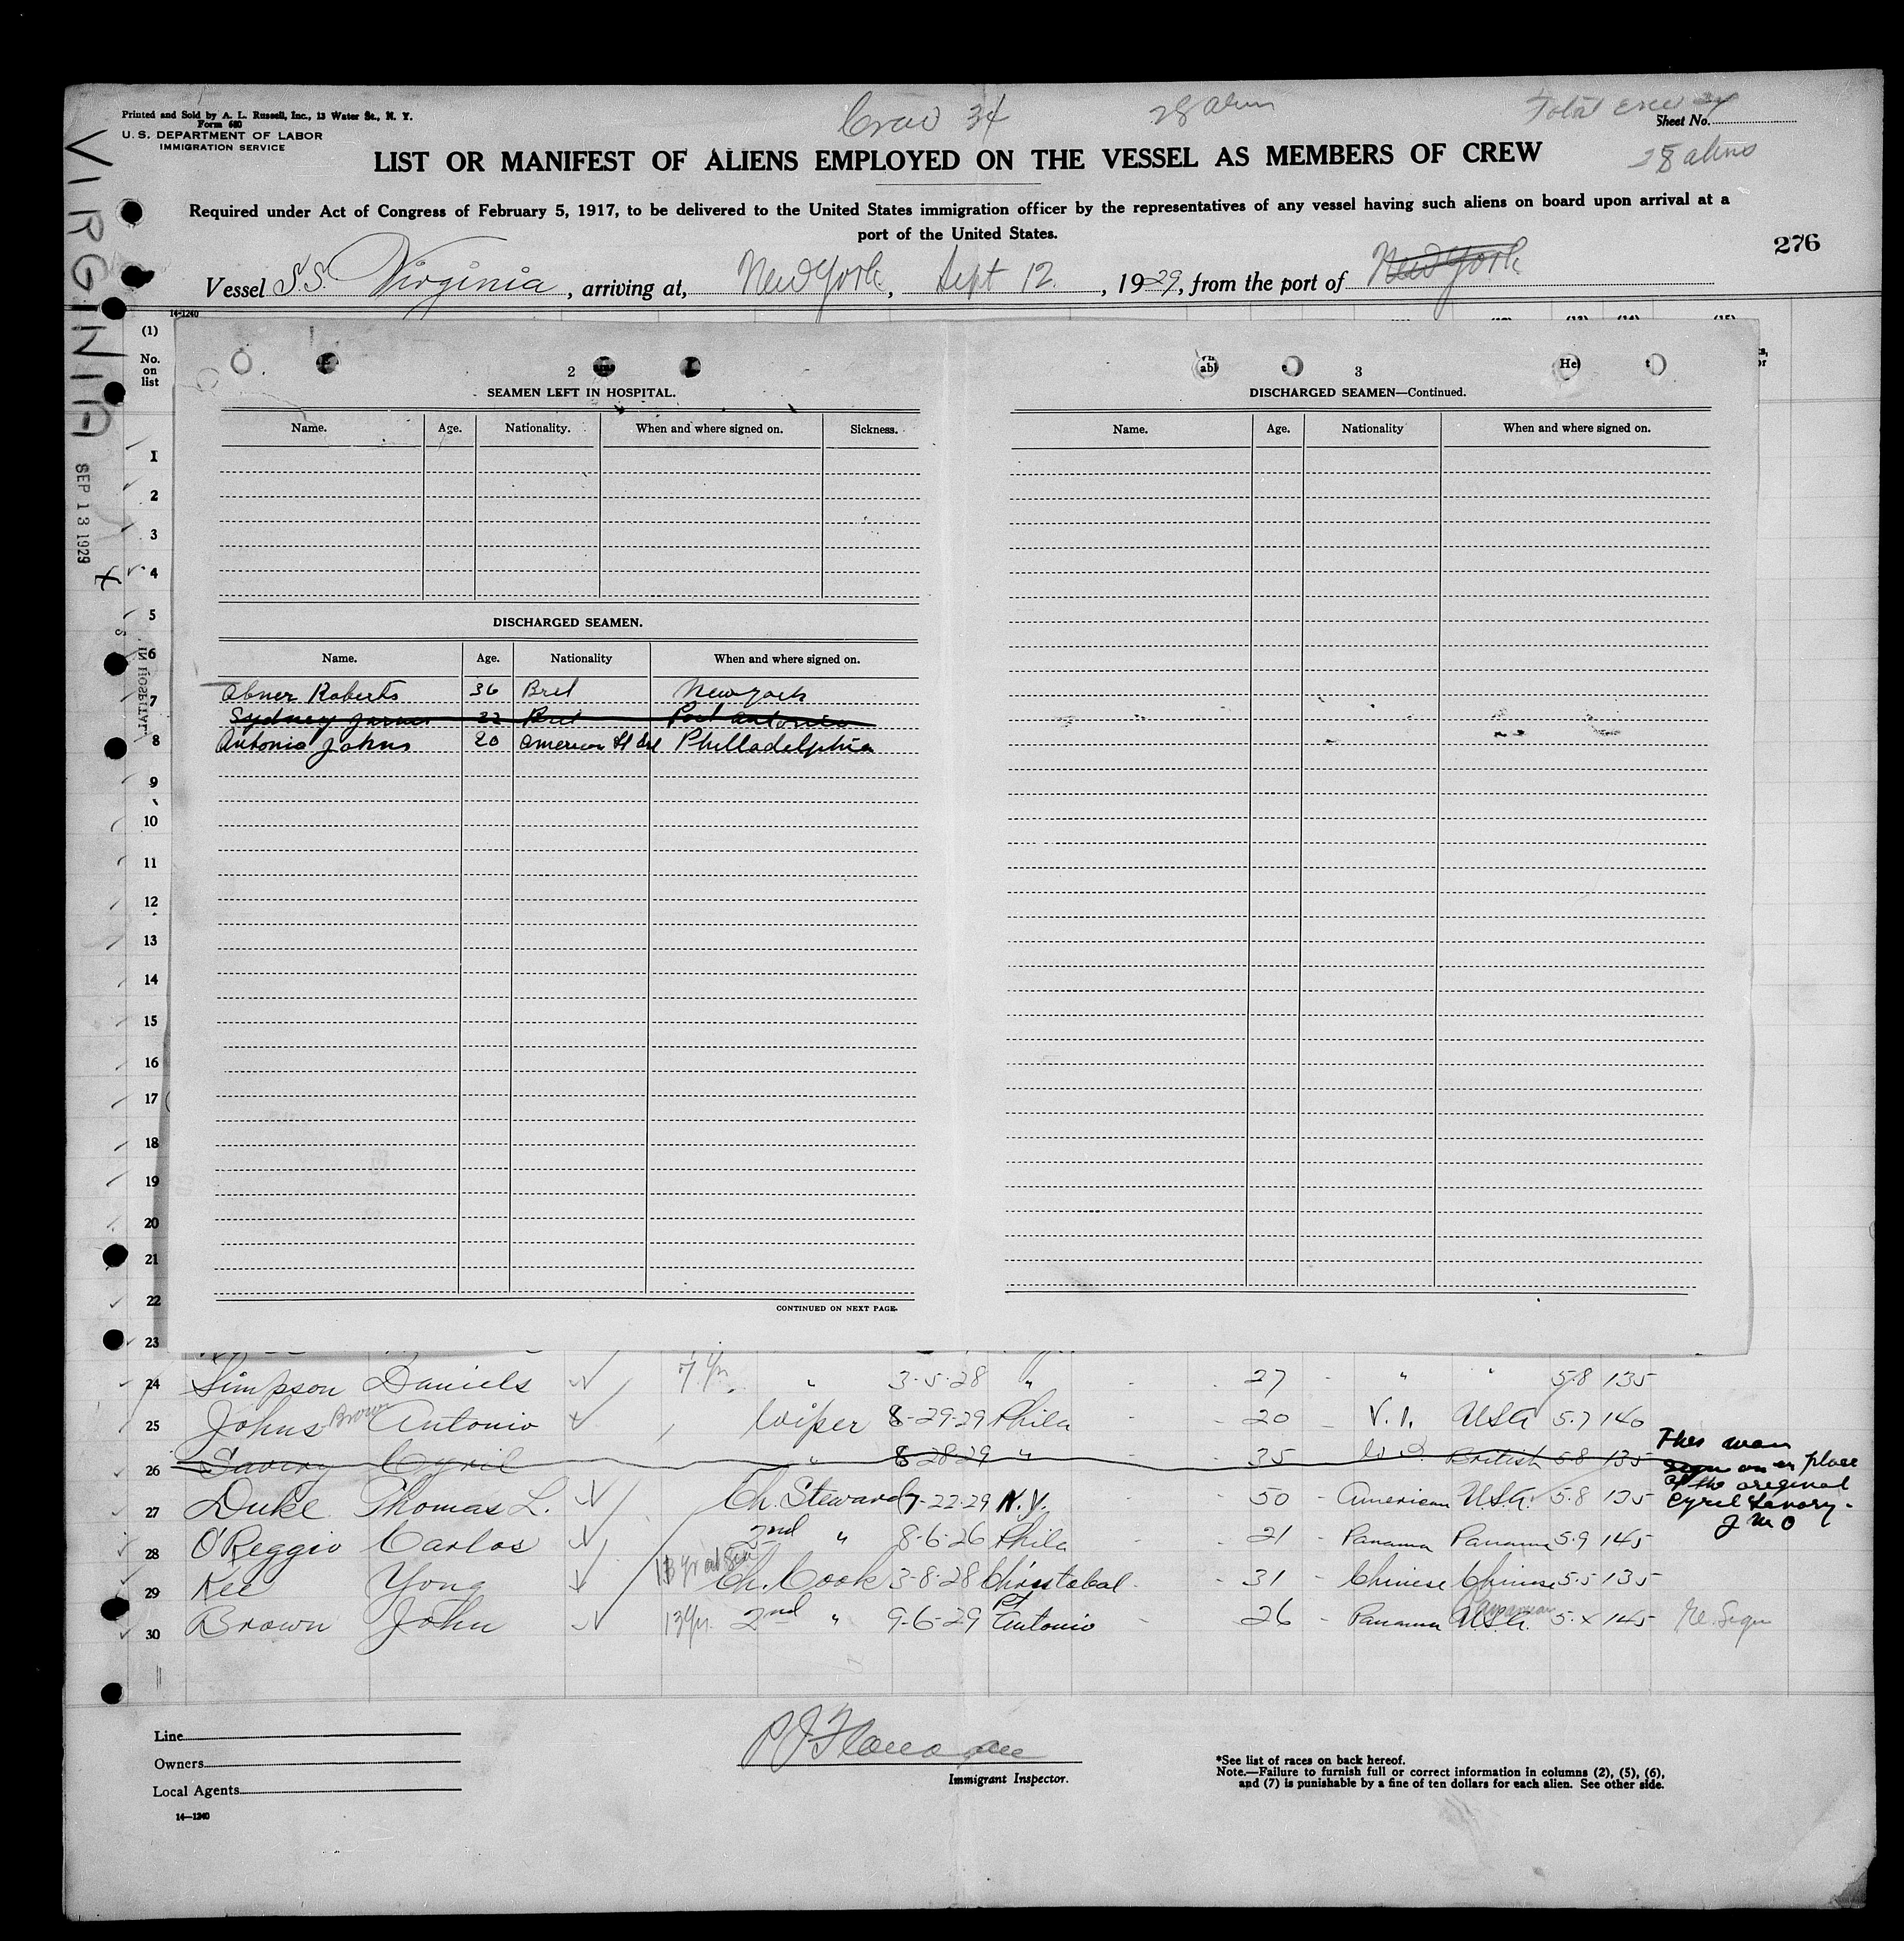 Printed and Sold by A. L. Russell, Inc., 13 Water St., N. Y.
Form 680
U. S. DEPARTMENT OF LABOR
IMMIGRATION SERVICE
Crew 34
28 alien
Total crew 34
Sheet No.
28 aliens
LIST OR MANIFEST OF ALIENS EMPLOYED ON THE VESSEL AS MEMBERS OF CREW
Required under Act of Congress of February 5, 1917, to be delivered to the United States immigration officer by the representatives of any vessel having such aliens on board upon arrival at a
port of the United States.
276
Vessel S.S. Virginia, arriving at, New York, Sept 12, 1929, from the port of New York
VIRGINIA
SEP 13 1929
14-1240
(1)
No. on list
2
SEAMEN LEFT IN HOSPITAL.
Name. Age. Nationality. When and where signed on. Sickness.
DISCHARGED SEAMEN.
Name. Age. Nationality When and where signed on.
Abner Roberts 36 Brit New York
Sydney 22 Brit Port Antonio
Antonio Johns 20 American Philladelphia
CONTINUED ON NEXT PAGE.
3
DISCHARGED SEAMEN—Continued.
Name. Age. Nationality When and where signed on.
1
2
3
4
5
6
7
8
9
10
11
12
13
14
15
16
17
18
19
20
21
22
23
24 Simpson Daniels 7 yr. " 3-5-28 " 27 " " 5-8 135
25 Johns Brown Antonio Wiper 8-29-29 Phila 20 V.I. USA 5-7 140
26 Savory Cyril " 8-28-29 " 35 British 5-8 135
This man sign on in place of the original Cyril Savory - J M O
27 Duke Thomas L. Ch. Steward 7-22-29 N.Y. 50 American U.S.A. 5-8 135
28 O'Reggio Carlos 2nd " 8-6-26 Phila 21 Panama Panama 5-9 145
29 Kee Yong Ch. Cook 3-8-28 Christobal 31 Chinese Chinese 5-5 135
30 Brown John 13 yr. 2nd " 9-6-29 Pt Antonio 26 Panama U.S.A. 5-x 145
Line
Owners
Local Agents
14—1240
Immigrant Inspector.
*See list of races on back hereof.
Note.—Failure to furnish full or correct information in columns (2), (5), (6),
and (7) is punishable by a fine of ten dollars for each alien. See other side.